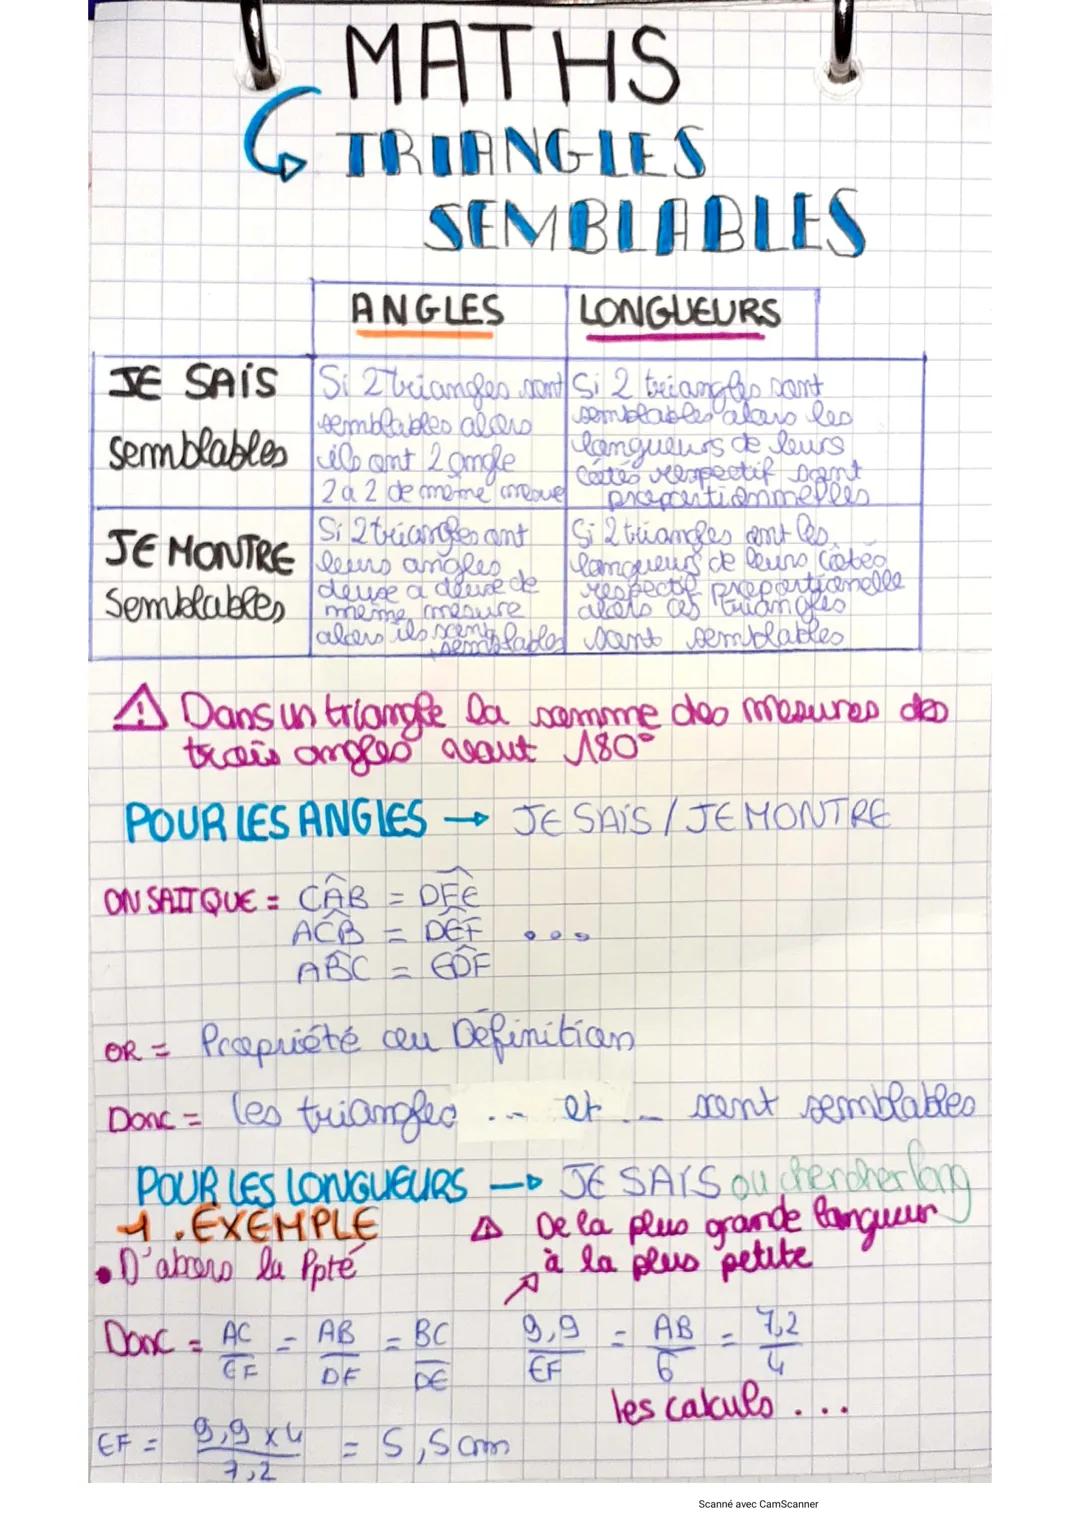 MATHS
TRIANGLES
SEMBLABLES
ANGLES
LONGUEURS
JE SAIS
semblables
Si 2 triangles sont
semblables alors
ils ont 2 angle
2 a 2 de même mesure
Si 2 triangles sont
semblables alors les
longueurs de leurs
côtés respectif sont
proportionnelles
JE MONTRE
Semblables
Si 2 triangles ont
leurs angles
deuxe a deuxe de
même mesure
alors ils sont
semblables
Si 2 triangles ont les
longueurs de leurs côtés
respectif proportionnelle
alors ces triangles
sont semblables
⚠ Dans un triangle la somme des mesures des
trois angles vaut 180°
POUR LES ANGLES → JE SAIS / JE MONTRE
ON SAIT QUE = CÂB = DFE
AĈB = DÊF ...
ABC = EDF
OR = Propriété ou Définition
Donc = les triangles ... et ... sont semblables
POUR LES LONGUEURS → JE SAIS ou chercher long
1. EXEMPLE
⚠ De la plus grande longueur
à la plus petite
• D'abors la Ppté
Donc = AC/EF = AB/DF = BC/DE
9,9/EF = AB/6 = 7,2/4
les calculs ...
EF = 9,9 x 4 / 7,2 = 5,5 cm
Scanné avec CamScanner